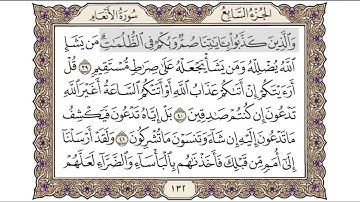 الجزء السابع
سورة الأنعام
وَالَّذِينَ كَذَّبُوا بِآيَاتِنَا صُمٌّ وَبُكْمٌ فِي الظُّلُمَاتِ مَن يَشَإِ
اللَّهُ يُضْلِلْهُ وَمَن يَشَأْ يَجْعَلْهُ عَلَىٰ صِرَاطٍ مُّسْتَقِيمٍ ٣٩ قُلْ
أَرَأَيْتَكُمْ إِنْ أَتَاكُمْ عَذَابُ اللَّهِ أَوْ أَتَتْكُمُ السَّاعَةُ أَغَيْرَ اللَّهِ
تَدْعُونَ إِن كُنتُمْ صَادِقِينَ ٤٠ بَلْ إِيَّاهُ تَدْعُونَ فَيَكْشِفُ
مَا تَدْعُونَ إِلَيْهِ إِن شَاءَ وَتَنسَوْنَ مَا تُشْرِكُونَ ٤١ وَلَقَدْ أَرْسَلْنَا
إِلَىٰ أُمَمٍ مِّن قَبْلِكَ فَأَخَذْنَاهُم بِالْبَأْسَاءِ وَالضَّرَّاءِ لَعَلَّهُمْ
١٣٢